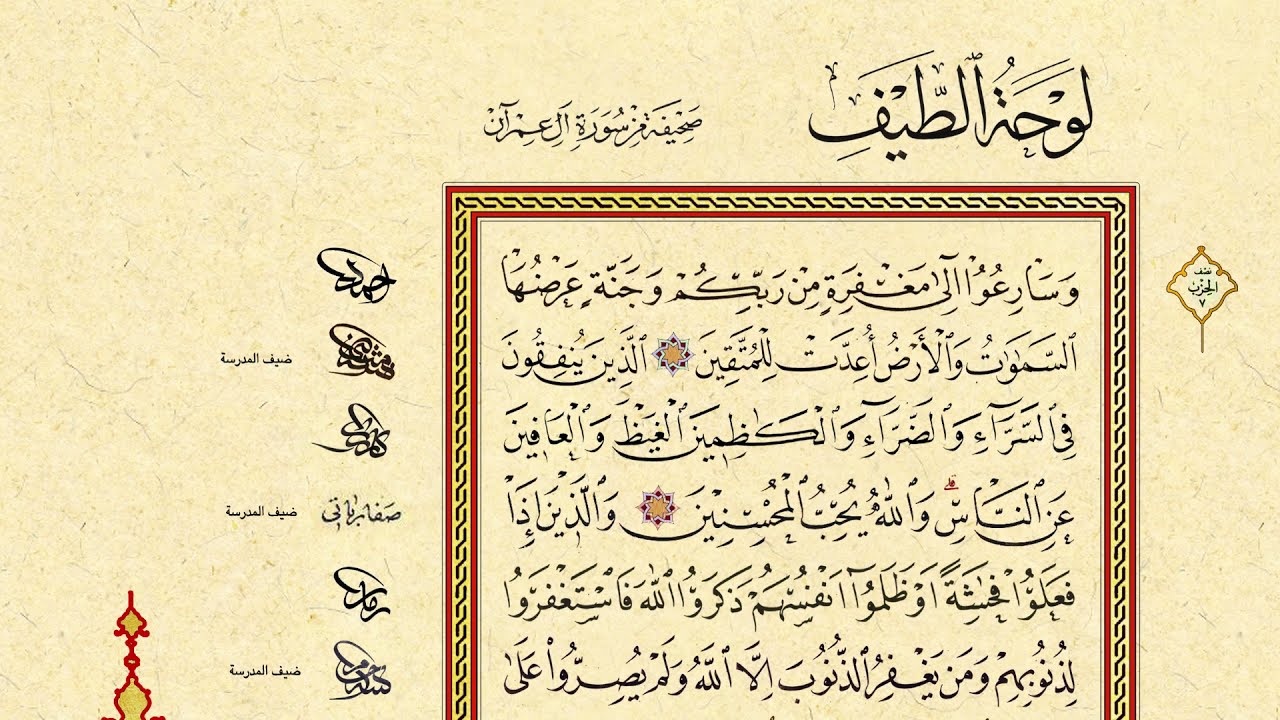 لَوْحَةُ ٱلطَّيْفِ
صَحِيفَة مِنْ سُورَةِ اٰلِ عِمْرَآنْ
نصف
الحِزْب
٧
وَسَارِعُٓوا اِلٰى مَغْفِرَةٍ مِنْ رَبِّكُمْ وَجَنَّةٍ عَرْضُهَا
السَّمٰوَاتُ وَالْأَرْضُ أُعِدَّتْ لِلْمُتَّقِينَ الَّذِينَ يُنْفِقُونَ
فِي السَّرَّٓاءِ وَالضَّرَّٓاءِ وَالْكَاظِمِينَ الْغَيْظَ وَالْعَافِينَ
عَنِ النَّاسِ ۗ وَاللّٰهُ يُحِبُّ الْمُحْسِنِينَ وَالَّذِينَ اِذَا
فَعَلُوا فَاحِشَةً اَوْ ظَلَمُٓوا اَنْفُسَهُمْ ذَكَرُوا اللّٰهَ فَاسْتَغْفَرُوا
لِذُنُوبِهِمْ وَمَنْ يَغْفِرُ الذُّنُوبَ اِلَّا اللّٰهُ وَلَمْ يُصِرُّوا عَلٰى
احمد
ضيف المدرسة
صفا برباتي
ضيف المدرسة
ضيف المدرسة